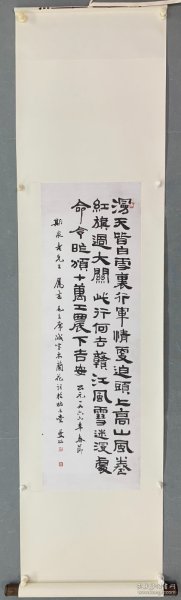 漫天皆白雪裏行軍情更迫頭上高山風卷
紅旗過大關此行何去贛江風雪迷漫處
命令昨頒十萬工農下吉安 公元一九六六年春節
老先生屬書毛主席減字木蘭花詞